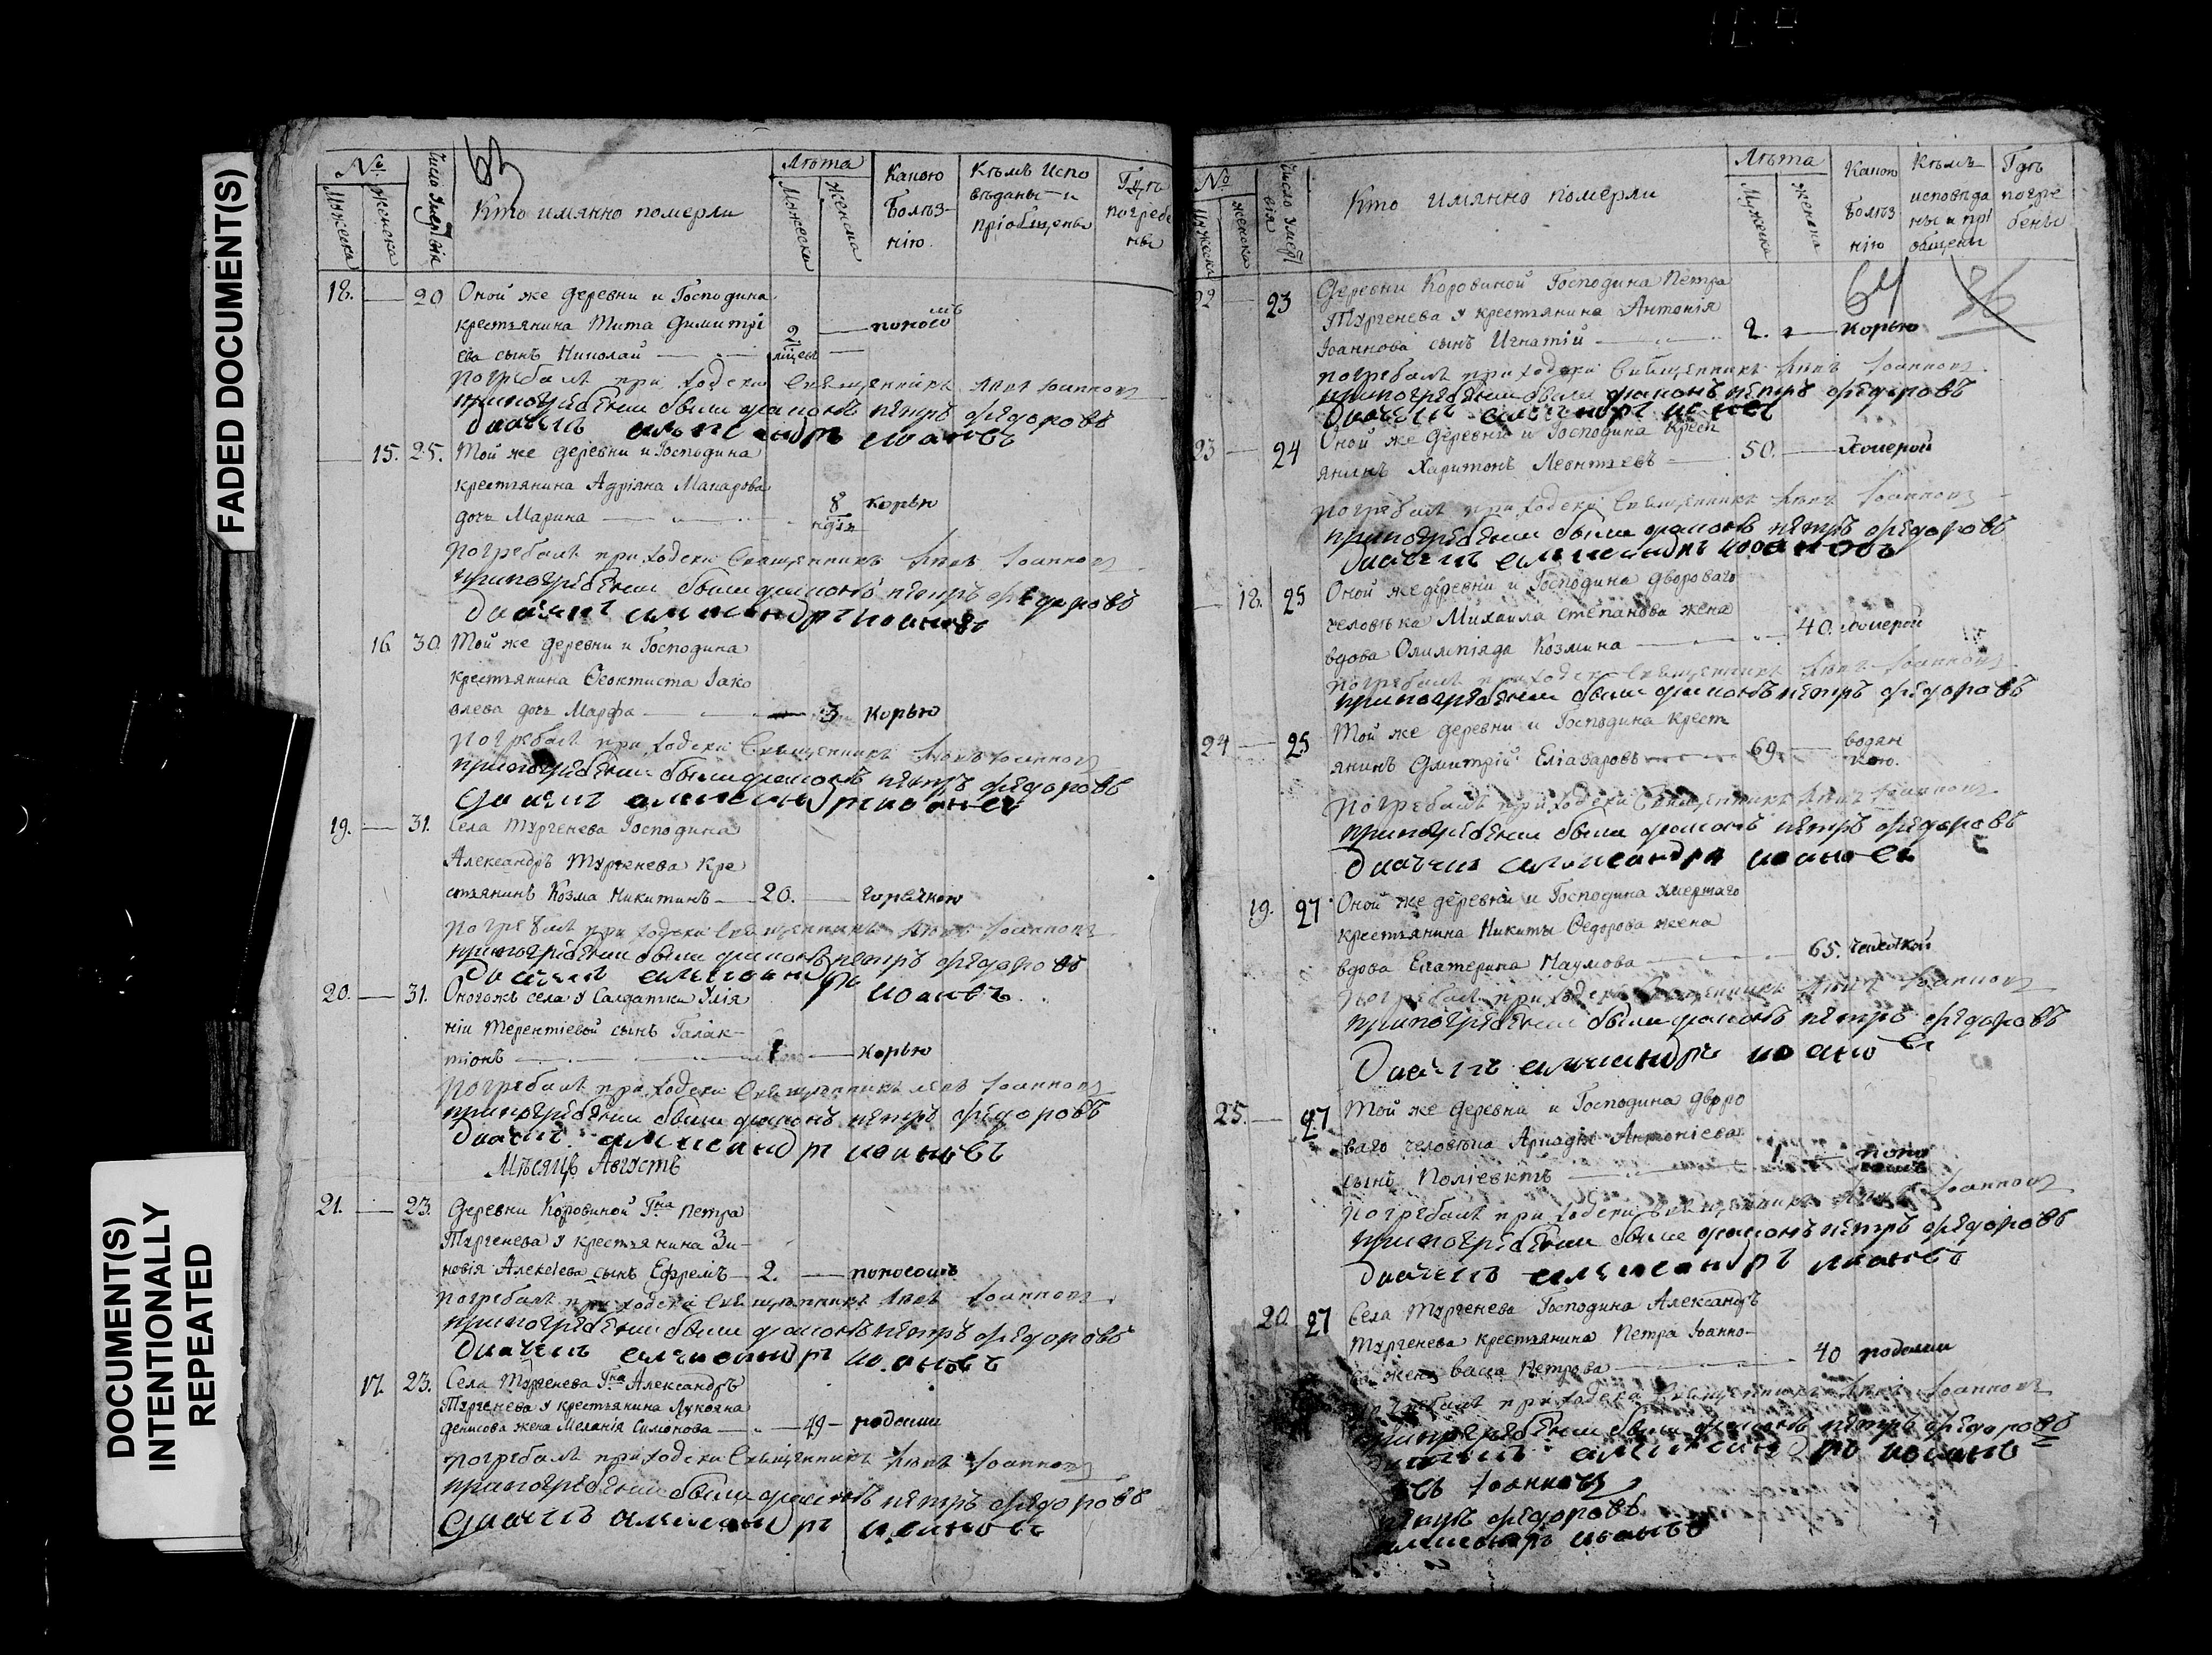 FADED DOCUMENT(S)
DOCUMENT(S)
INTENTIONALLY
REPEATED
63
№
Мужеска
женска
Число Умертвія
Кто имянно померли
Лѣта
Мужеска
женска
Какою
Болѣз-
нію
Кѣмъ Испо
вѣданы и
пріобщены
Гдѣ
погребе
ны
18. — 20 Оной же деревни и Господина
крестьянина Тита Димитрі
ева сынъ Николай — 2 мѣсец — поносомъ
погребалъ приходски Священникъ Левъ Іоанновъ
при погребении были дьяконъ петръ федоровъ
дьячекъ александръ иоановъ
— 15. 25. Той же деревни и Господина
крестьянина Адріяна Макарова
дочь Марина — 8 недѣл корью
погребалъ приходски Священникъ Левъ Іоанновъ
при погребении были дьяконъ петръ федоровъ
дьячекъ александръ иоановъ
16 30. Той же деревни и Господина
крестьянина Ѳеоктиста Іако
влева дочь Марфа — 3 корью
погребалъ приходски Священникъ Левъ Іоанновъ
при погребении были дьяконъ петръ федоровъ
дьячекъ александръ иоановъ
19. — 31. Села Тургенева Господина
Александръ Тургенева Кре
стьянинъ Козма Никитинъ — 20. — горячкою
погребалъ приходски Священникъ Левъ Іоанновъ
при погребении были дьяконъ петръ федоровъ
дьячекъ александръ иоановъ
20. — 31. Оногожъ села у Салдатки Улія
ніи Терентіевой сынъ Галак-
тіонъ — корью
погребалъ приходски Священникъ левъ Іоанновъ
при погребении были дьяконъ петръ федоровъ
дьячекъ александръ иоановъ
Мѣсяцъ Августъ
21. — 23. Деревни Коровиной Гна Петра
Тургенева у крестьянина Зи-
новія Алексіева сынъ Ефремъ — 2. — поносомъ
погребалъ приходски Священникъ Левъ Іоанновъ
при погребении были дьяконъ петръ федоровъ
дьячекъ александръ иоановъ
17. 23. Села Тургенева Гна Александръ
Тургенева у крестьянина Лукояна
денисова жена Меланія Симонова — 49 — родами
погребалъ приходски Священникъ Левъ Іоанновъ
при погребении были дьяконъ петръ федоровъ
дьячекъ александръ иоановъ
№
Мужеска
женска
Число Умертвія
Кто имянно померли
Лѣта
Мужеска
женска
Какою
Болѣз
нію
Кѣмъ
исповѣда
ны и прі
общены
Гдѣ
погре
бены
64
86
22 — 23 Деревни Коровиной Господина Петра
Тургенева у крестьянина Антонія
Іоаннова сынъ Игнатій — 2. — корью
погребалъ приходски Священникъ Левъ Іоанновъ
при погребении были дьяконъ петръ федоровъ
дьячекъ александръ иоановъ
23 — 24 Оной же деревни и Господина крест
янинъ Харитонъ Леонтьевъ — 50. — холерой
погребалъ приходски Священникъ Левъ Іоанновъ
при погребении были дьяконъ петръ федоровъ
дьячекъ александръ иоановъ
— 18. 25 Оной же деревни и Господина двороваго
человѣка Михаила степанова жена
вдова Олимпіяда Козмина — 40. холерой
погребалъ приходски Священникъ Левъ Іоанновъ
при погребении были дьяконъ петръ федоровъ
24 — 25 Той же деревни и Господина крест
янинъ Дмитрій Еліазаровъ — 69. — водян
кою.
погребалъ приходски Священникъ Левъ Іоанновъ
при погребении были дьяконъ петръ федоровъ
дьячекъ александръ иоановъ
19. 27 Оной же деревни и Господина умершаго
крестьянина Никиты Ѳедорова жена
вдова Екатерина Наумова — 65. чахоткой
погребалъ приходски Священникъ Левъ Іоанновъ
при погребении были дьяконъ петръ федоровъ
дьячекъ александръ иоановъ
25. — 27 Той же деревни и Господина дворо
ваго человѣка Аркадія Антоніева
сынъ Поліевктъ — 1 — поно
сомъ
погребалъ приходски Священникъ Левъ Іоанновъ
при погребении были дьяконъ петръ федоровъ
дьячекъ александръ иоановъ
20 27 Села Тургенева Господина Александръ
Тургенева крестьянина Петра Іоанно-
ва жена васа Петрова — 40 родами
погребалъ приходски Священникъ Левъ Іоанновъ
при погребении были дьяконъ петръ федоровъ
дьячекъ александръ иоановъ
Іоанновъ
петръ федоровъ
александръ иоановъ